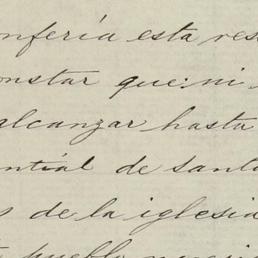 onfería esta res
onstar que: ni
alcanzar hasta
ential de santa
s de la iglesia
pueblo